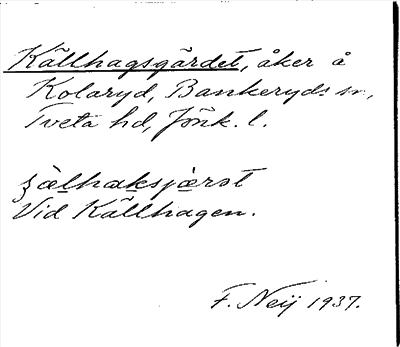 Källhagsgärdet, åker å
Kolaryd, Bankeryds sn,
Tveta hd, Jönk. l.
ʒælhaksjærət
Vid Källhagen.
F. Neij 1937.